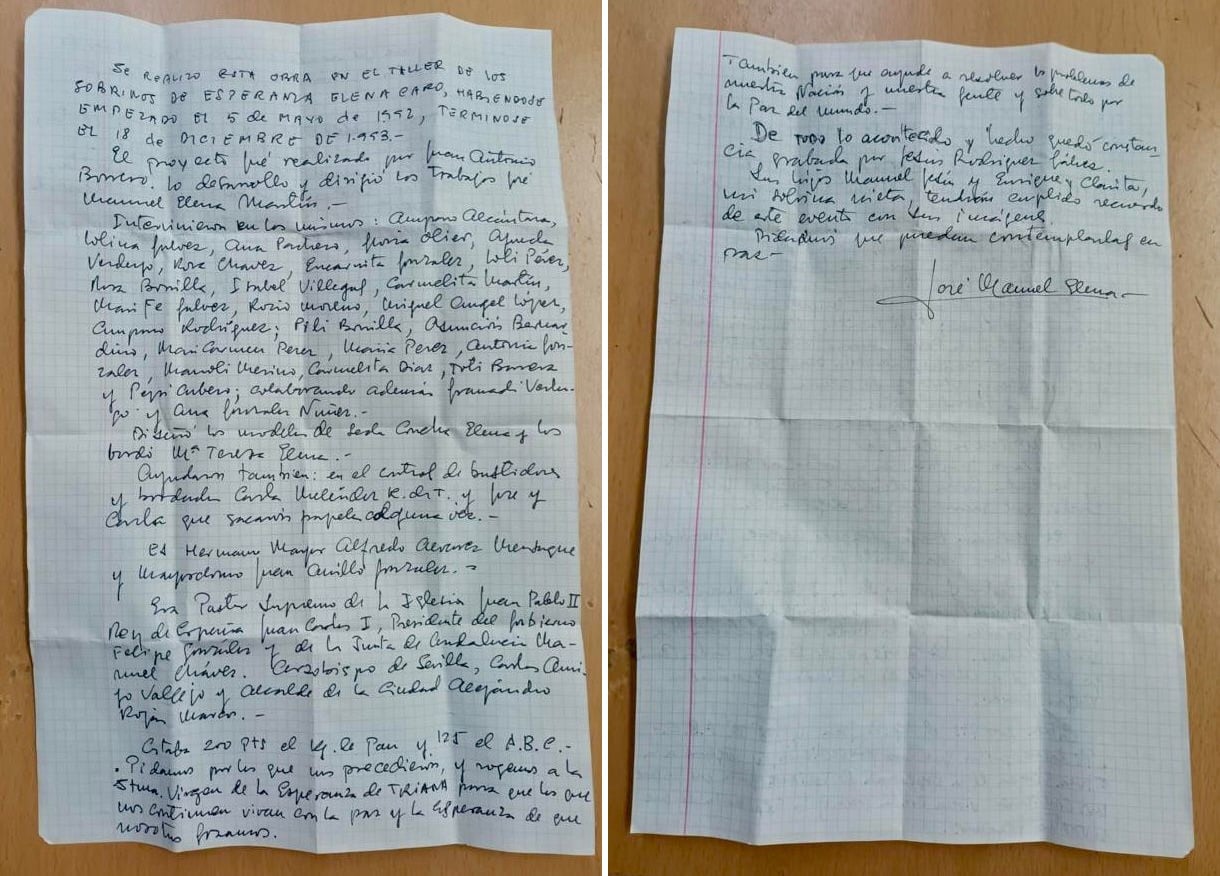 SE REALIZO ESTA OBRA EN EL TALLER DE LOS
SOBRINOS DE ESPERANZA ELENA CARO, HABIENDOSE
EMPEZADO EL 5 DE MAYO de 1992, TERMINOSE
EL 18 de DICIEMBRE DE 1.993.-
El proyecto fué realizado por Juan Antonio
Borrero. Lo desarrollo y dirigió los trabajos fué
Manuel Elena Martín.-
Intervinieron en los mismos: Amparo Alcántara,
Lolina Galvez, Ana Pacheco, Gloria Olier, Agueda
Verdugo, Rosa Chavez, Encarnita Gonzalez, Loli Pérez,
Rosa Bonilla, Isabel Villegas, Carmelita Martín,
Mari Fe Galvez, Rocío Moreno, Miguel Angel López,
Amparo Rodríguez; Pili Bonilla, Asunción Bernar-
dino, Mari Carmen Perez, María Perez, Antonia Gon-
zalez, Manoli Merino, Carmelita Diaz, Toti Barrera
y Pepi Cubero; colaborando además Granadi Verdu-
go y Ana Gonzalez Nuñez.-
Diseñó los modelos de seda Concha Elena y los
bordó Mª Teresa Elena.-
Ayudaron tambien: en el control de bastidores
y bordados Carla Meléndez R. de T. y Jose y
Carla que sacarón papeles alguna vez.-
es Hermano Mayor Alfredo Alvarez Mensaque
y Mayordomo Juan Carillo Gonzalez.-
Era Pastor Supremo de la Iglesia Juan Pablo II
Rey de España Juan Carlos I, Presidente del Gobierno
Felipe González y de la Junta de Andalucia Ma-
nuel Chávez. Arzobispo de Sevilla, Carlos Ami-
go Vallejo y Alcalde de la Ciudad Alejándro
Rojas Marcos.-
Costaba 200 Pts el Kg. de Pan y 125 el A.B.C.-
Pidamos por los que nos precedieron, y rogamos a la
Stma. Virgen de la Esperanza de TRIANA para que los que
nos continuen vivan con la paz y la Esperanza de que
nosotros gozamos.
Tambien para que ayude a resolver los problemas de
nuestra Nación y nuestra gente y sobre todo por
la Paz del mundo.-
De todo lo acontecido y hecho quedó constan-
cia, grabada por Jesús Rodríguez Gálvez.
Sus hijos Manuel Jesús y Enrique y Clarita,
mi sobrina nieta, tendrán cumplido recuerdo
de este evento con sus imágenes.
que puedan contemplarlas en
paz-
José Manuel Elena.-